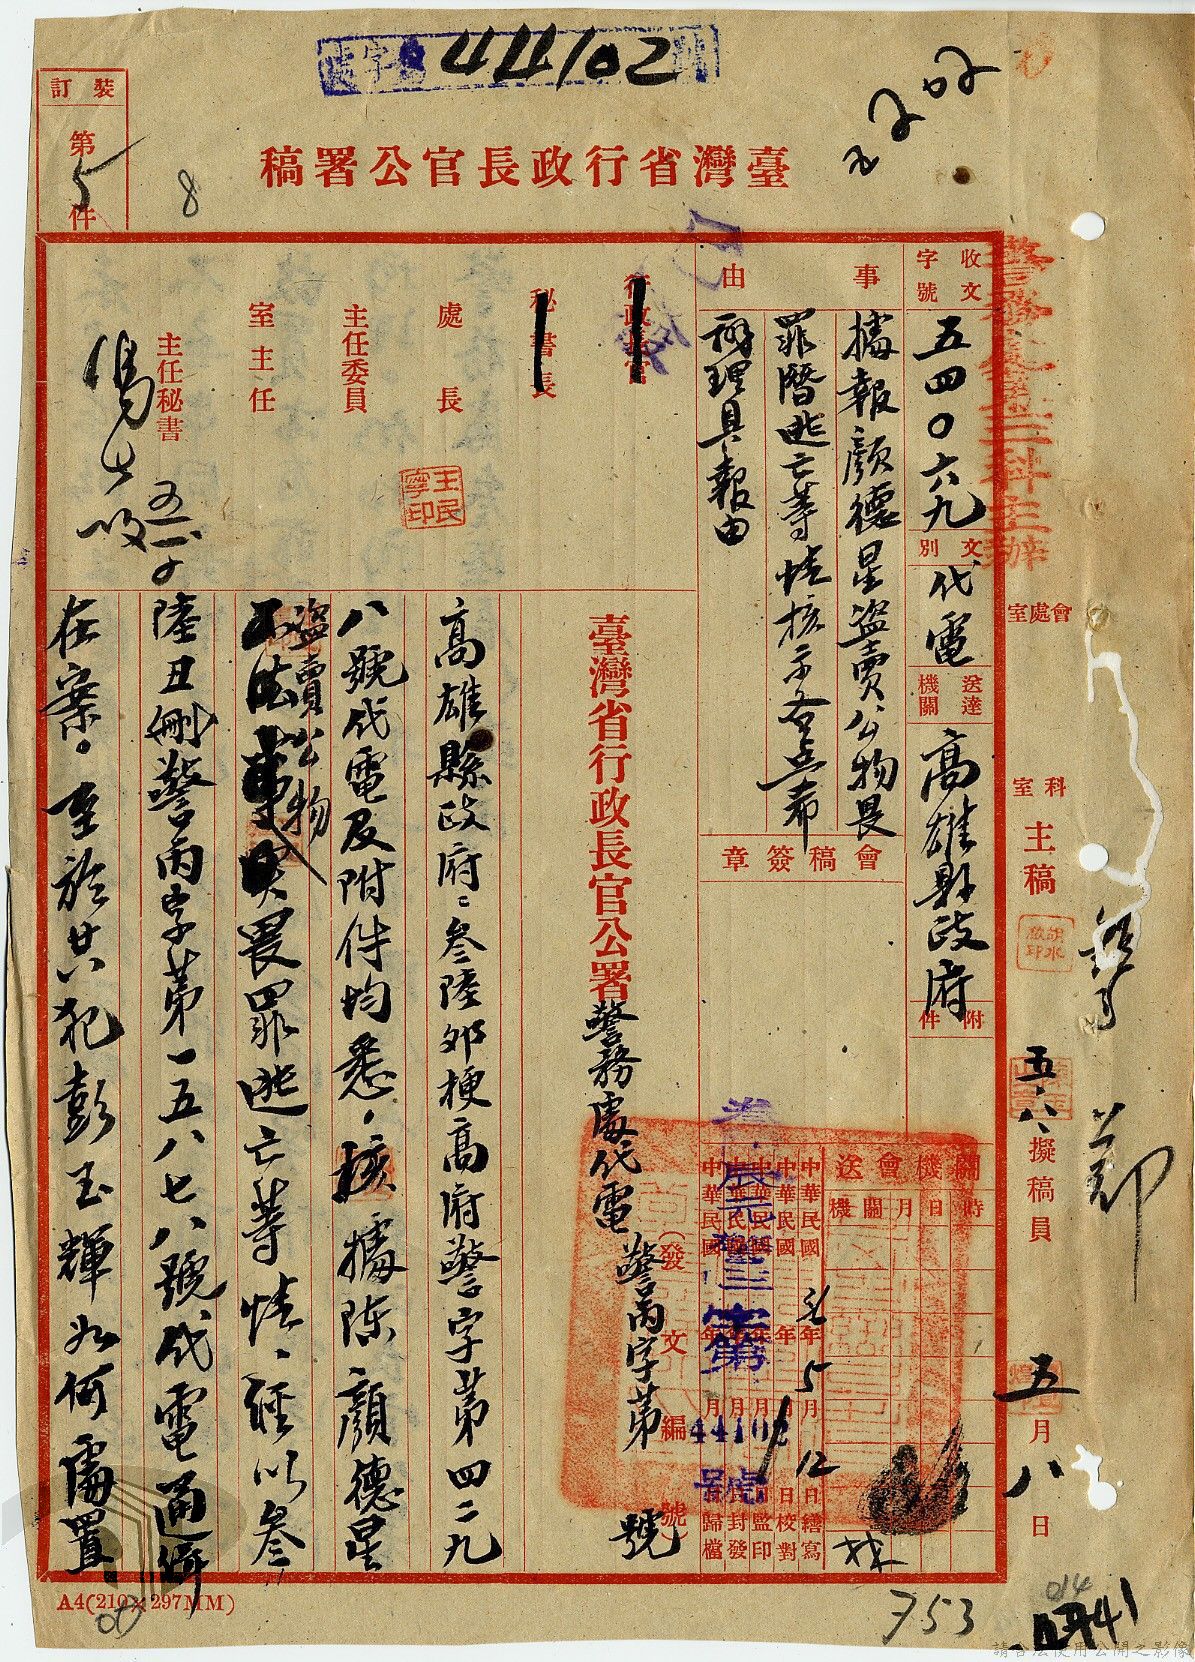 44102
臺灣省行政長官公署稿
裝訂
第5件
8
收文字號
五四〇六九
文別
代電
送達機關
高雄縣政府
附件
事由
據報顏德星盜賣公物畏
罪潛逃亡等情核示各點希
辦理具報由
會稿簽章
行政長官
秘書長
處長
王民寧印
主任委員
室主任
主任秘書
警務處第三科主辦
會處室
科室
主稿
五、八、
擬稿員
五月八日
機關會送
機關
月
日
時
中華民國 年5月12日繕寫
中華民國 年 月 日校對
中華民國 年 月 日監印
中華民國 年 月 日封發
中華民國 年 月 日歸檔
44102號
(發文編號)
臺灣省行政長官公署警務處代電 警丙字第 號
高雄縣政府：叁陸卯梗高府警字第四二九
八號代電及附件均悉。核據陳顏德星
盜賣公物
畏罪逃亡等情，經以叁
陸丑刪警丙字第一五八七八號代電通緝
在案。至於共犯彭玉輝如何處置
A4(210×297MM)
753
014
請合法使用公開之影像